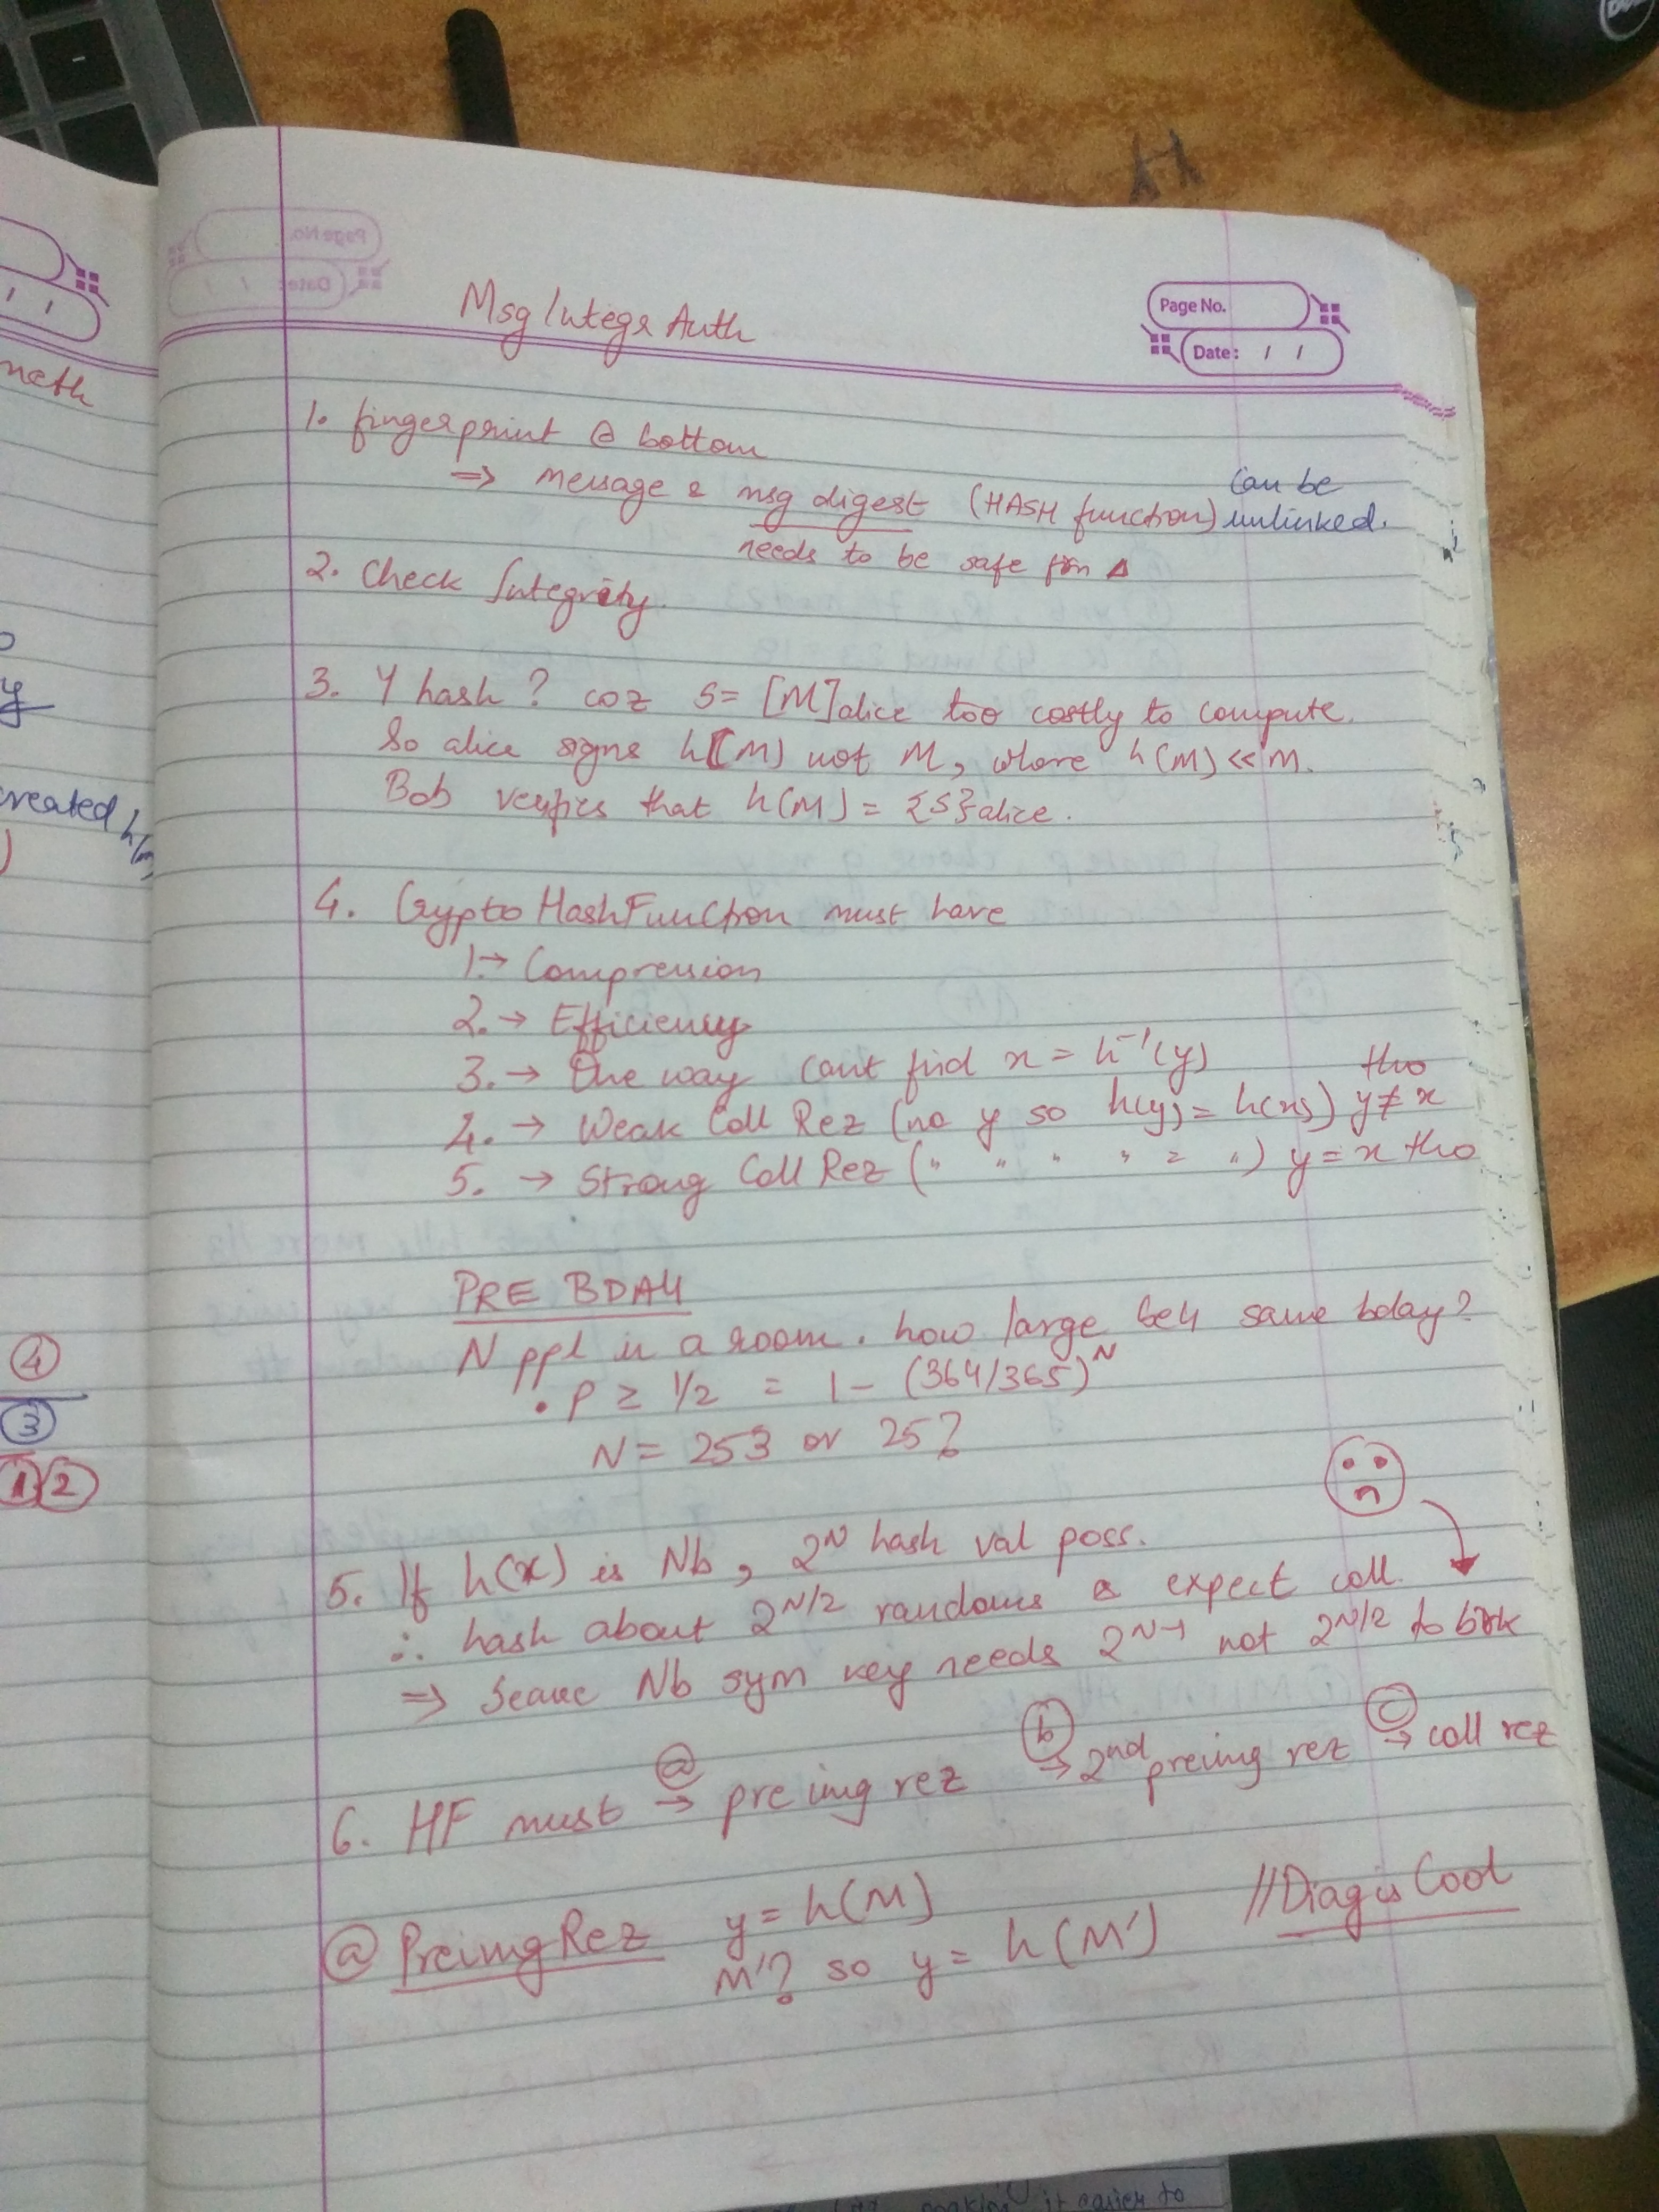 Msg Integr Auth
Page No.
Date: / /
neth
1. fingerprint @ bottom
can be
⇒ message & msg digest (HASH function) unlinked.
needs to be safe frm Δ
2. Check Integrity.
3. Y hash? coz S = [M]alice too costly to compute.
So alice signs h(M) not M, where h(M) << M.
Bob verifies that h(M) = {S}alice.
created h/m
4. Crypto HashFunction must have
1. → Compression
2. → Efficiency
3. → One way cant find x = h⁻¹(y)
tho
4. → Weak Coll Rez (no y so h(y) = h(x)) y ≠ x
5. → Strong Coll Rez ( " " " " = " ) y = x tho
PRE BDAY
N ppl in a room. how large be4 same bday?
. P ≥ 1/2 = 1 - (364/365)^N
N = 253 or 25?
④
③
①②
5. If h(x) is Nb, 2^N hash val poss.
∴ hash about 2^N/2 randoms & expect coll.
⇒ Secure Nb sym key needs 2^N-1 not 2^N/2 to brk
ⓐ ⓑ ⓒ
6. HF must → pre img rez → 2nd preimg rez → coll rez
ⓐ PreimgRez y = h(M) //Diag is Cool
M'? so y = h(M')
it easier to